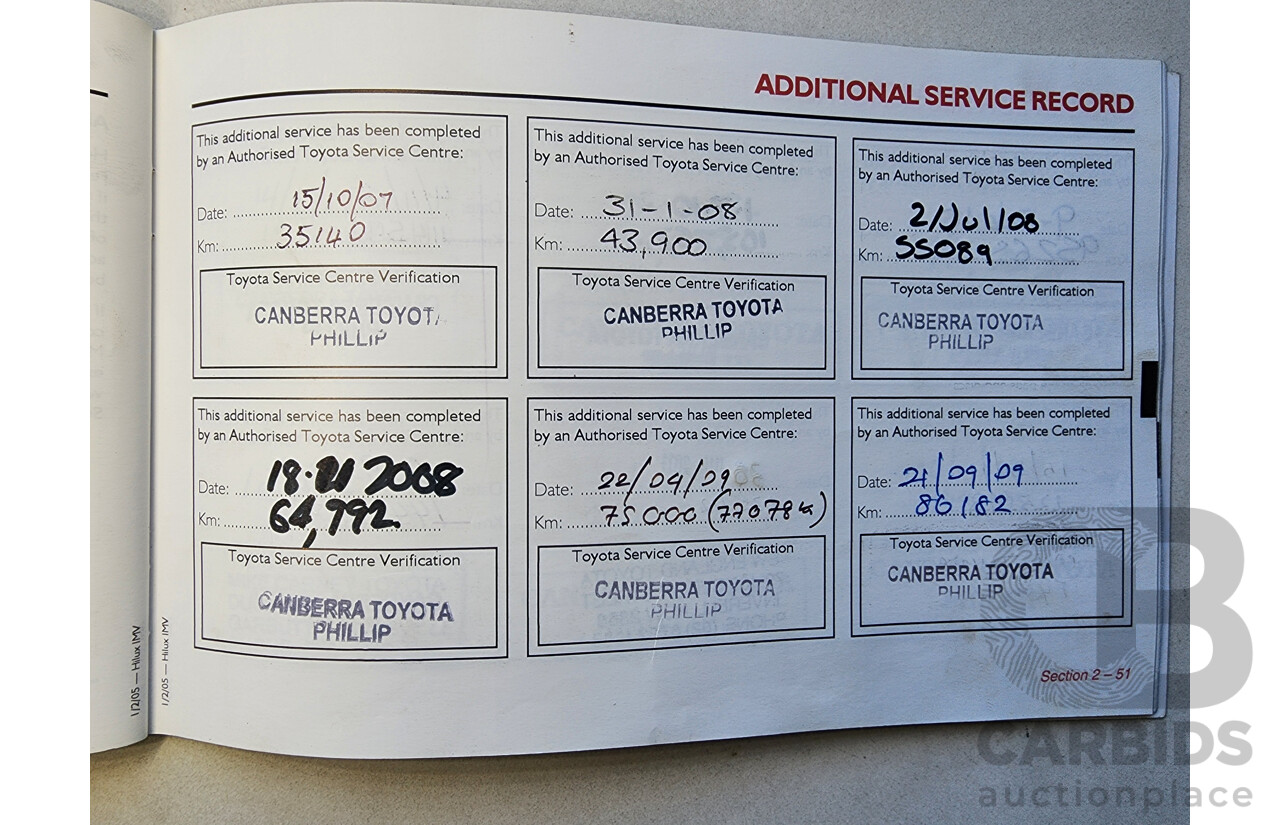 ADDITIONAL SERVICE RECORD
This additional service has been completed
by an Authorised Toyota Service Centre:
Date: 15/10/07
Km: 35140
Toyota Service Centre Verification
CANBERRA TOYOTA
PHILLIP
This additional service has been completed
by an Authorised Toyota Service Centre:
Date: 31-1-08
Km: 43,900
Toyota Service Centre Verification
CANBERRA TOYOTA
PHILLIP
This additional service has been completed
by an Authorised Toyota Service Centre:
Date: 2/Jul/08
Km: 55089
Toyota Service Centre Verification
CANBERRA TOYOTA
PHILLIP
This additional service has been completed
by an Authorised Toyota Service Centre:
Date: 18. 2008
Km: 64,792.
Toyota Service Centre Verification
CANBERRA TOYOTA
PHILLIP
This additional service has been completed
by an Authorised Toyota Service Centre:
Date: 22/04/09
Km: 75000 (77078k)
Toyota Service Centre Verification
CANBERRA TOYOTA
PHILLIP
This additional service has been completed
by an Authorised Toyota Service Centre:
Date: 21/09/09
Km: 86182
Toyota Service Centre Verification
CANBERRA TOYOTA
PHILLIP
Section 2 – 51
1/2/05 — Hilux IMV
1/2/05 — Hilux IMV
B
CARBIDS
auctionplace